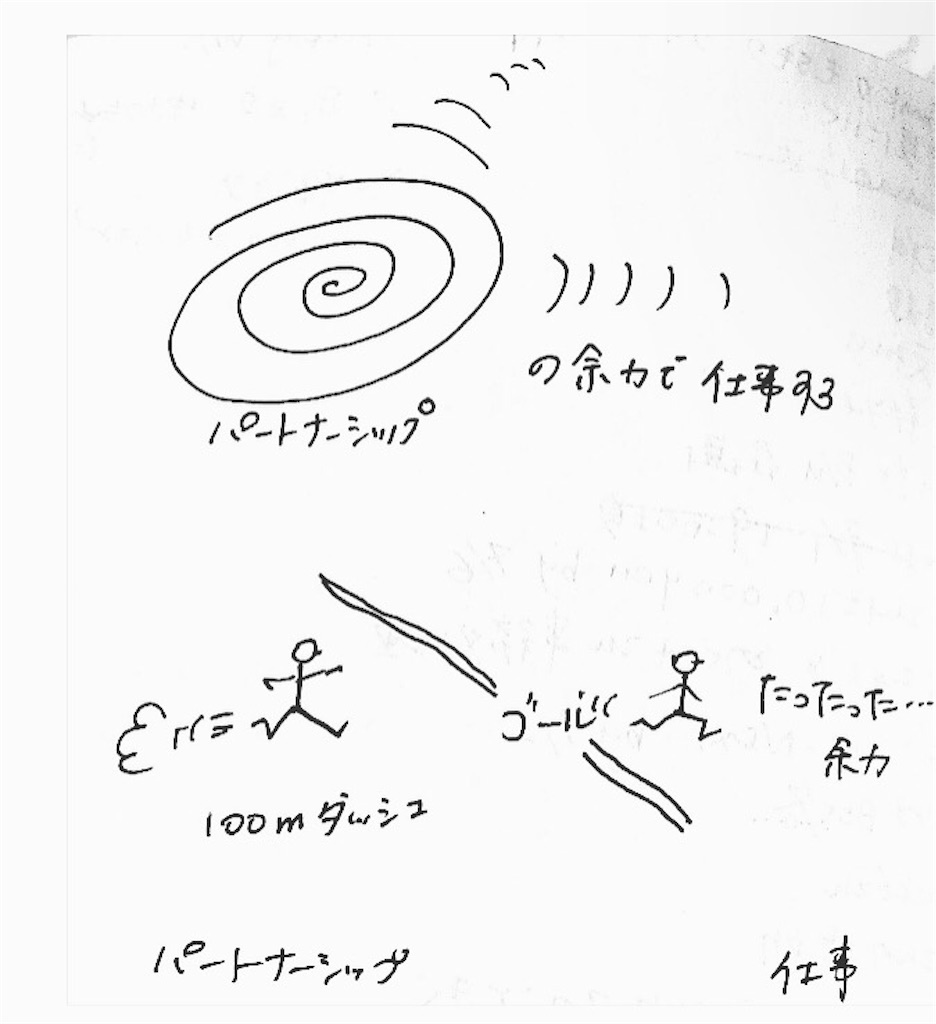 の余力で仕事する
パートナーシップ
ゴール!!
たったったった…
余力
100mダッシュ
パートナーシップ
仕事